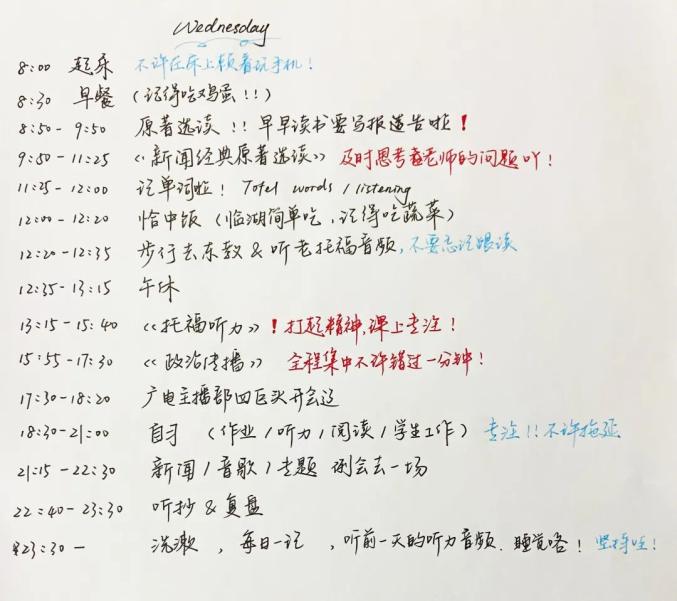 Wednesday
8:00 起床 不许在床上躺着玩手机！
8:30 早餐 (记得吃鸡蛋!!)
8:50-9:50 原著选读 !! 早早读书要写报道告啦！
9:50-11:25 《新闻经典原著选读》 及时思考老师的问题吖！
11:25-12:00 记单词啦！ Tofel words / listening
12:00-12:20 恰中饭 (临湖简单吃，记得吃蔬菜)
12:20-12:35 步行去东教 & 听老托福音频，不要忘记跟读
12:35-13:15 午休
13:15-15:40 《托福听力》！打起精神，课上专注！
15:55-17:30 《政治传播》 全程集中不许错过一分钟！
17:30-18:20 广电主播部四巨头开会辽
18:30-21:00 自习 (作业/听力/阅读/学生工作) 专注!!不许拖延
21:15-22:30 新闻/音歌/专题 例会去一场
22:40-23:30 听抄 & 复盘
23:30- 洗漱，每日一记，听前一天的听力音频．睡觉咯！ 坚持哇！